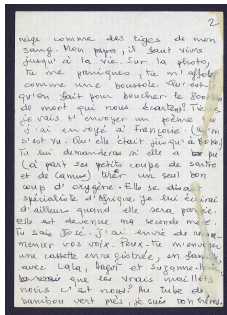 2
neige comme des tiges de mon
sang. Mon papa, il faut vivre
jusqu'à la vie. Sur la photo,
tu me paniques, tu m'affoles
comme une boussole. Qu'est-
qu'on fait pour boucher le
de mort qui nous écartent? Tiens
je vais t'envoyer un poème que
j'ai envoyé à Françoise. (
s'est vu. Qu'elle était jusqu'à
Tu lui demanderas si elle a pu
(à part ses petits coups de sartre
et de camus) tirer un seul bon
coup d'oxygène. Elle se disait
spécialiste d'Afrique. Je lui écrirai
d'ailleur quand elle sera partie.
Elle est devenue ma seconde mère.
Tu sais José. J'ai envie de
mener vos voix. Peux-tu m'envoyer
une cassette enregistrée, en
avec Lala, Magot et Suzanne.
que les vrais maillots
noirs c'est nous? Au tube de
bambou vert